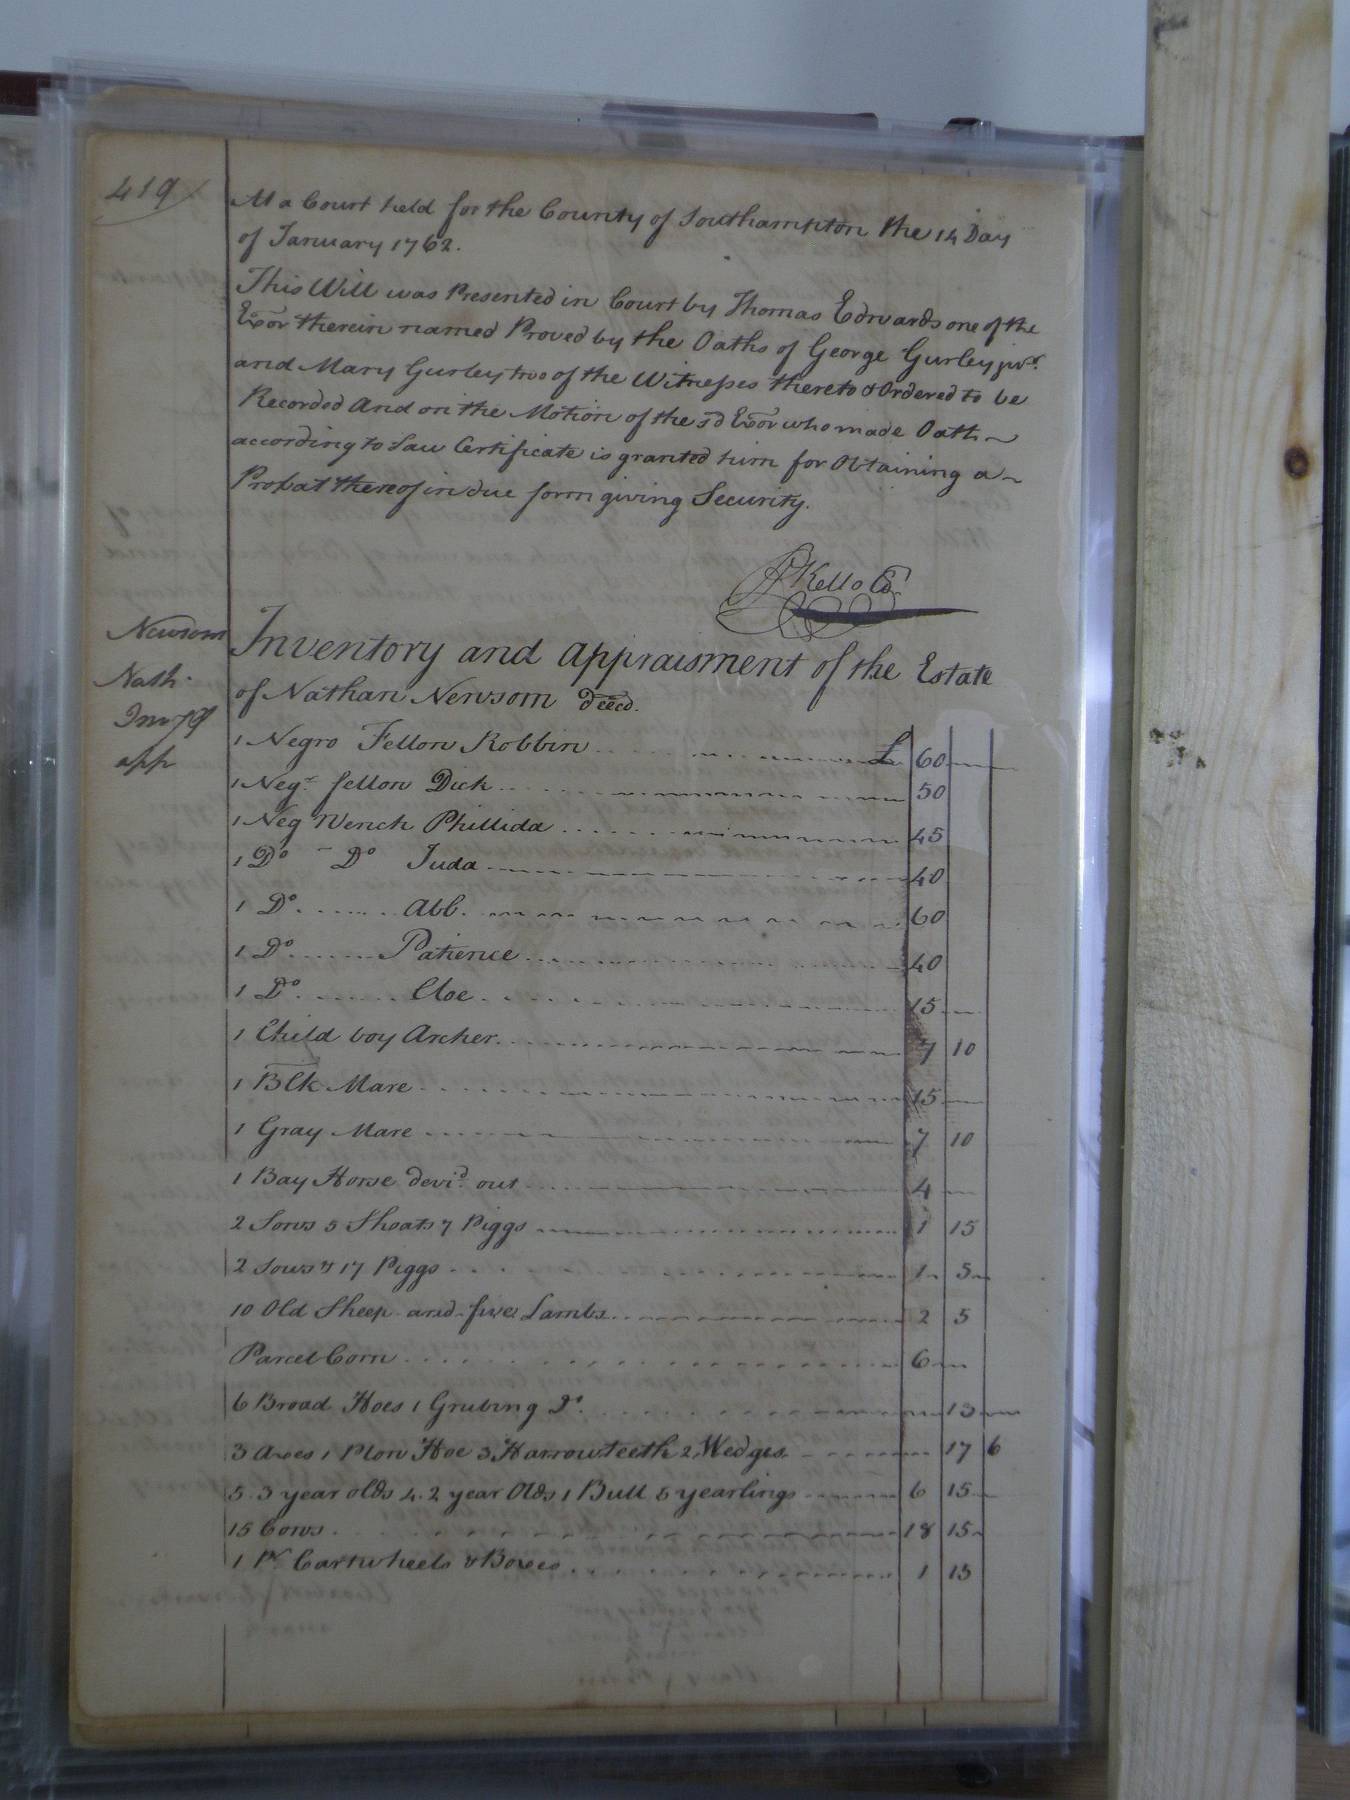 419
At a Court held for the County of Southampton the 14 Day
of January 1762.
This Will was Presented in Court by Thomas Edwards one of the
Exor therein named Proved by the Oaths of George Gurley junr.
and Mary Gurley two of the Witnesses thereto & Ordered to be
Recorded And on the Motion of the sd Exor who made Oath
according to Law Certificate is granted him for Obtaining a
Probat thereof in due form giving Security.
Kello
Newsom
Nath.
Inv &
app
Inventory and Appraisment of the Estate
of Nathan Newsom Deced.
1 Negro Fellow Robbin £ 60
1 Negr. fellow Dick 50
1 Neg Wench Phillida 45
1 Do Do Juda 40
1 Do. Abb. 60
1 Do Patience 40
1 Do. Cloe 15
1 Child boy Archer 7 10
1 Blk Mare 15
1 Gray Mare 7 10
1 Bay Horse devid. out 4
2 Sows 5 Shoats 7 Piggs 1 15
2 Sows & 17 Piggs 1 5
10 Old Sheep and five Lambs 2 5
Parcel Corn 6
6 Broad Hoes 1 Grubing Do. 13
3 Axes 1 Plow Hoe 3 Harrow teeth 2 Wedges 17 6
5. 3 year olds 4. 2 year Olds 1 Bull 5 yearlings 6 15
15 Cows 18 15
1 Pr. Cartwheels & Boxes 1 15